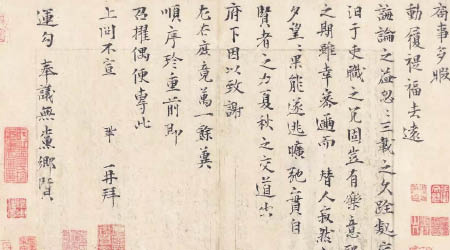 局事多暇
動履禔福去遠
誨論之益忽忽三載之久跧處
汩于吏職之冗固豈有樂意
之期雖幸密邇而替人寂然
夕望望果能遂逃曠弛實自
賢者之力夏秋之交道出
府下因以致謝
左右庶竟萬一餘冀
順序珍重前即
召擢偶便專此
上問不宣 鞏再拜
運勾奉議無黨鄉賢